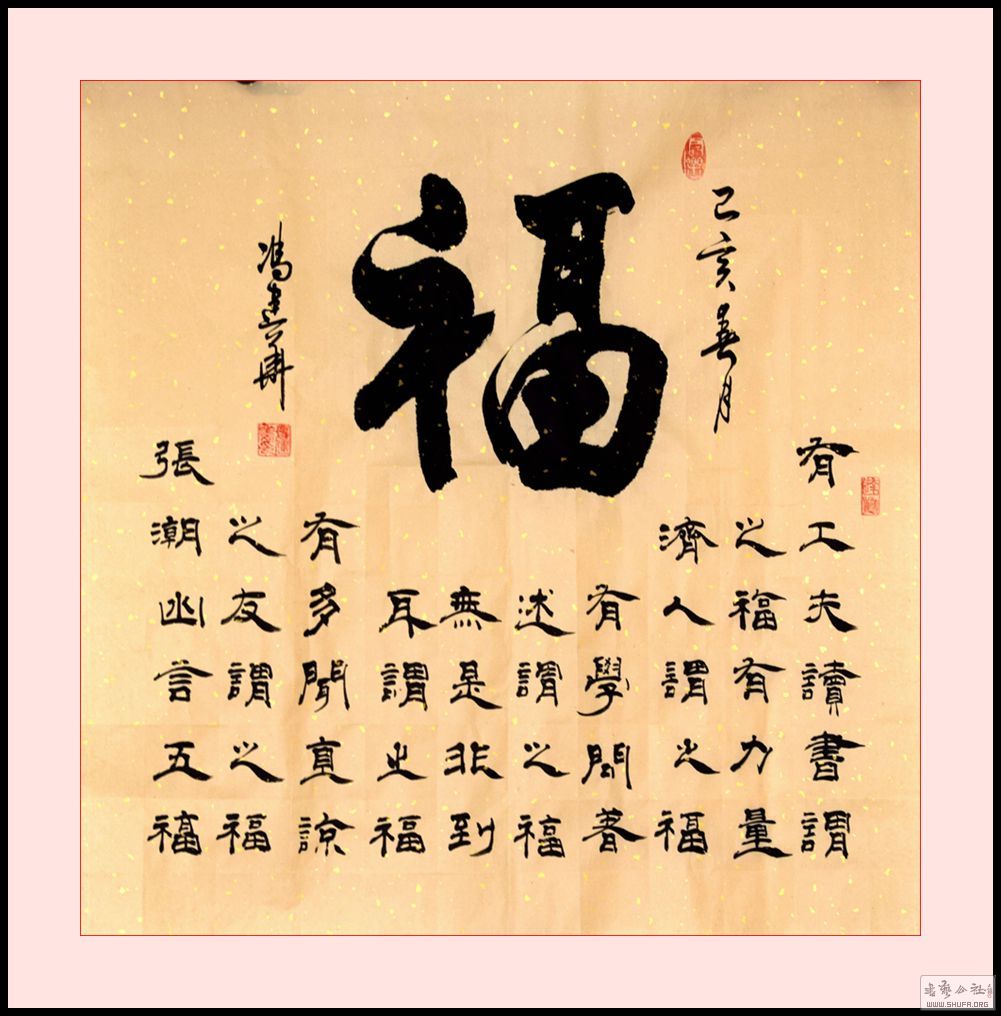 福
己亥春月
有工夫讀書謂
之福有力量
濟人謂之福
有學問著
述謂之福
無是非到
耳謂之福
有多聞直諒
之友謂之福
張潮幽言五福
馮建華
WWW.SHUFA.ORG